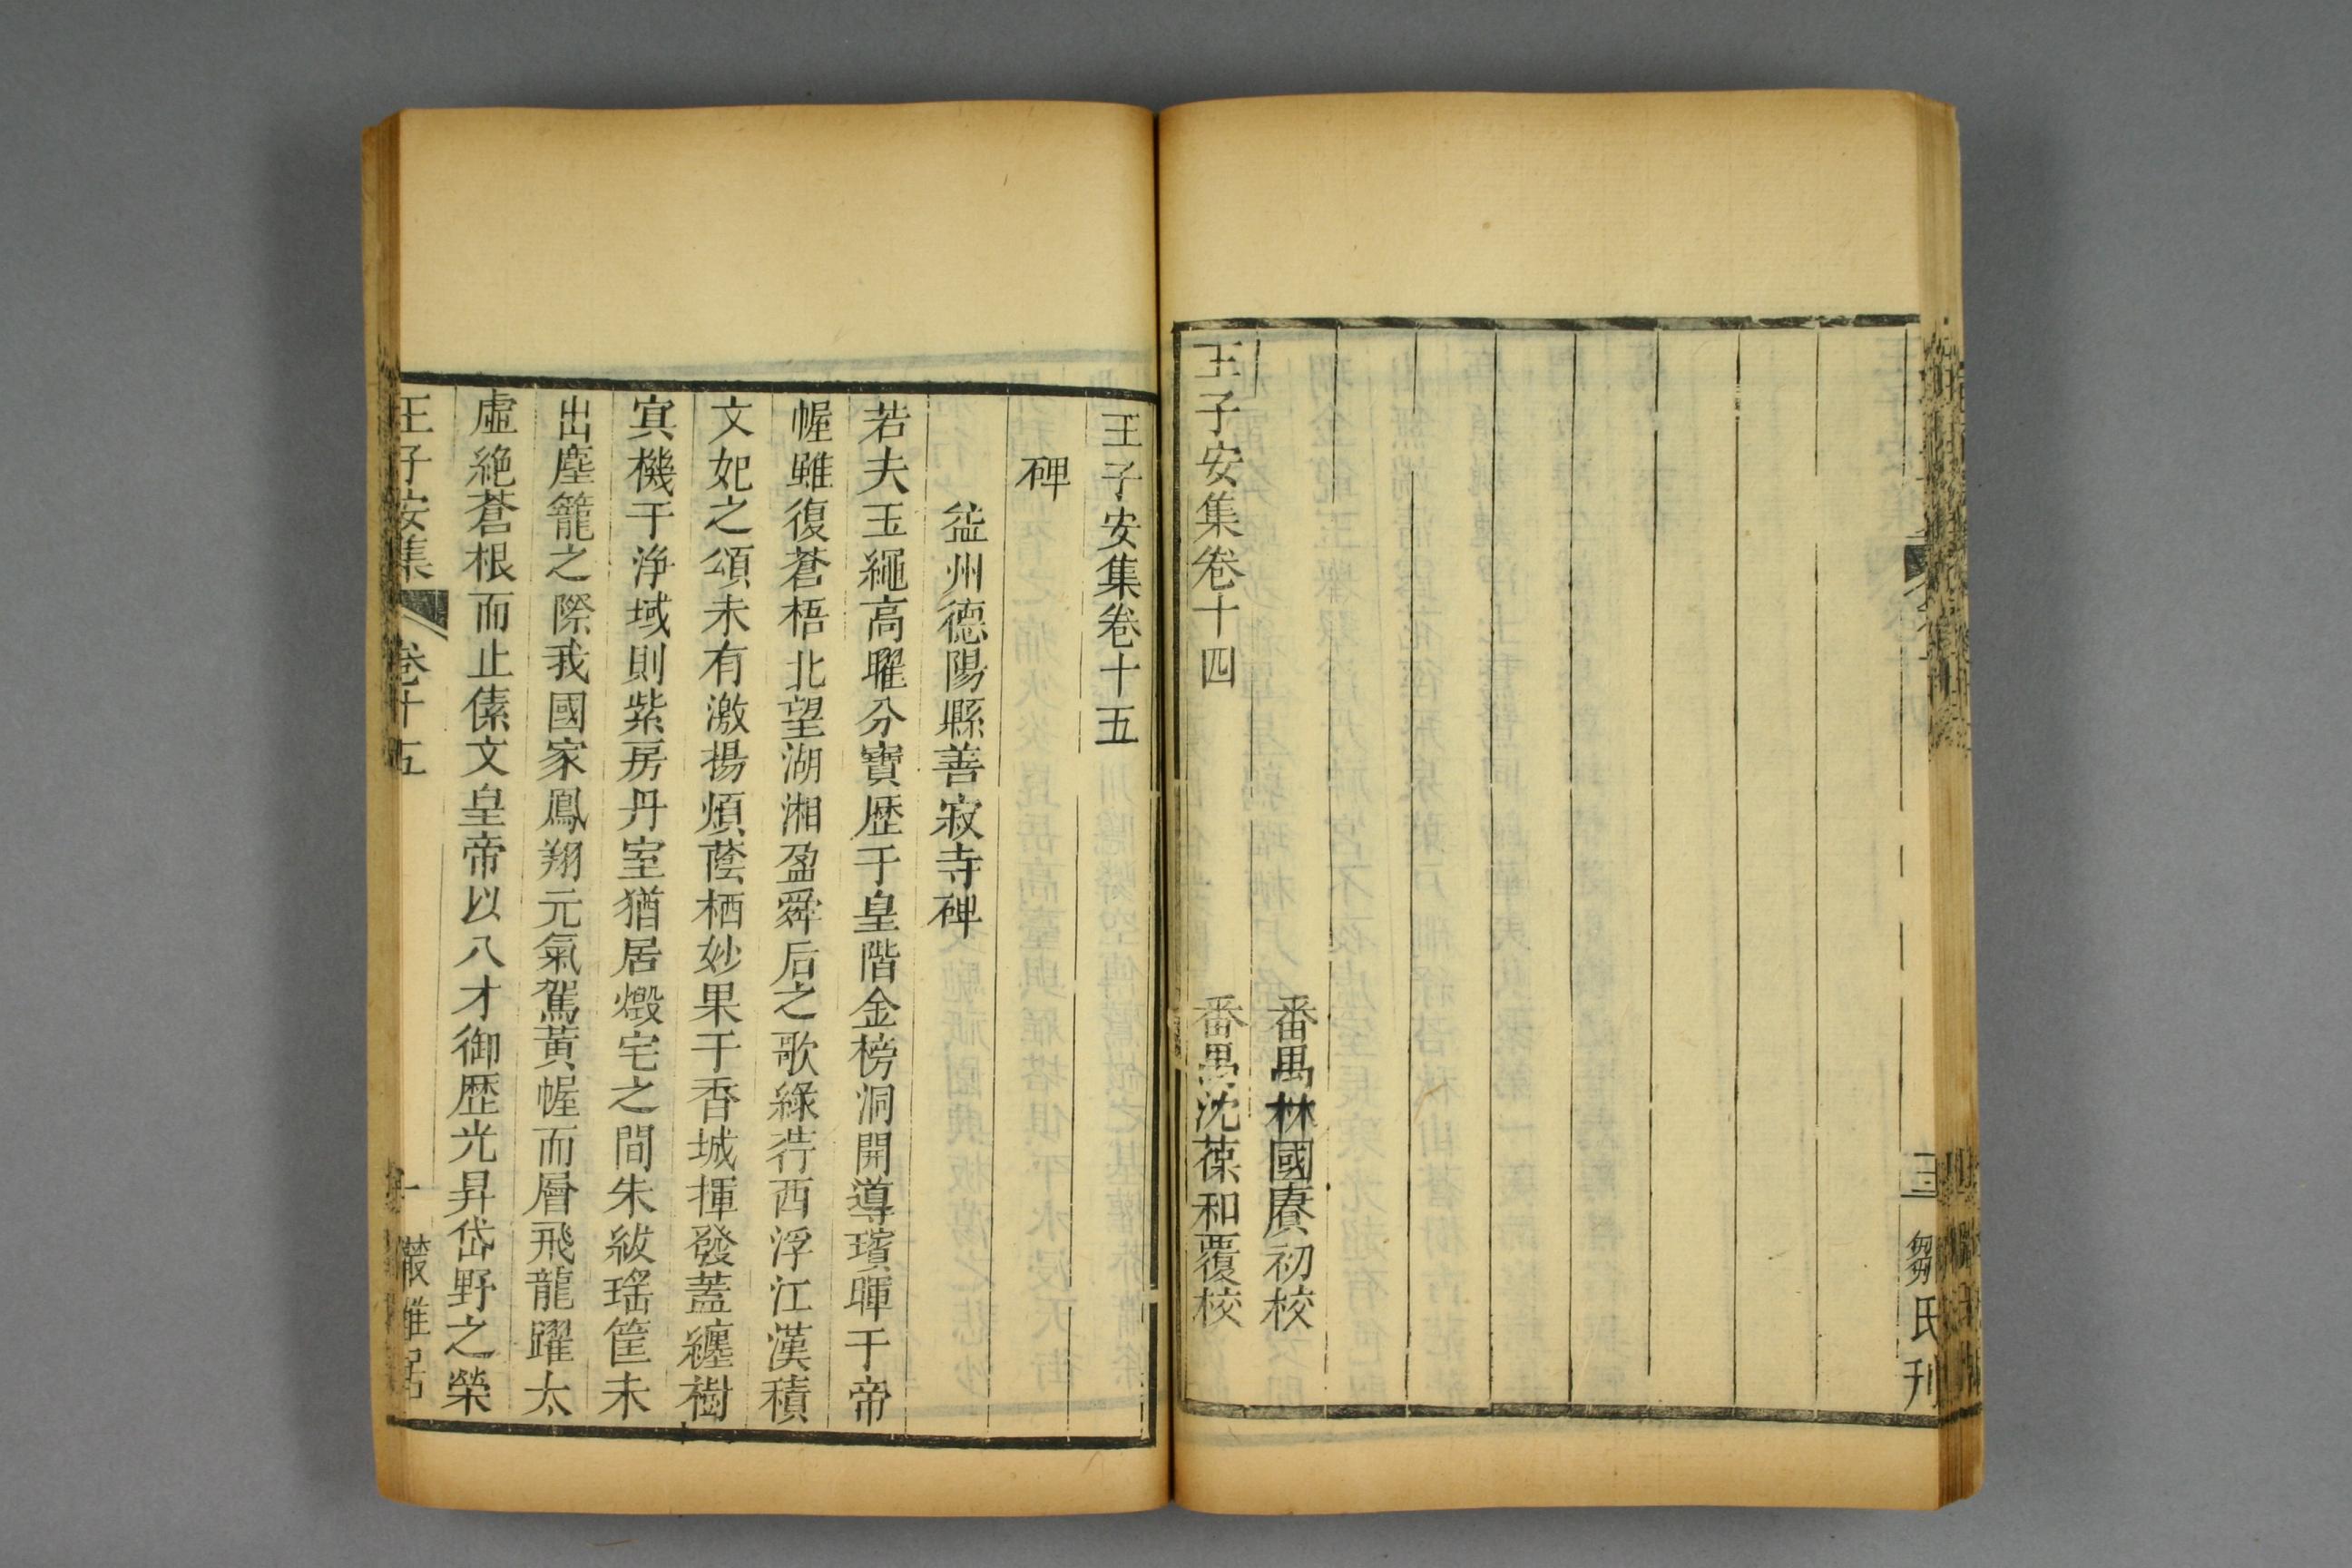 三 鄒氏刊
番禺林國賡初校
王子安集卷十四 番禺沈葆和覆校
王子安集卷十五
碑
益州德陽縣善寂寺碑
若夫玉繩高曜分寶歴于皇階金榜洞開導璸暉于帝
幄雖復蒼梧北望湖湘盈舜后之歌綠荇西浮江漢積
文妃之頌未有激揚煩蔭栖妙果于香城揮發蓋纏樹
寘機于浄域則紫房丹室猶居燬宅之間朱紱瑤筐未
出塵籠之際我國家鳳翔元氣駕黃幄而層飛龍躍太
虛絶蒼根而止傃文皇帝以八才御歴光昇岱野之榮
王子安集 卷十五 一 叢雅居